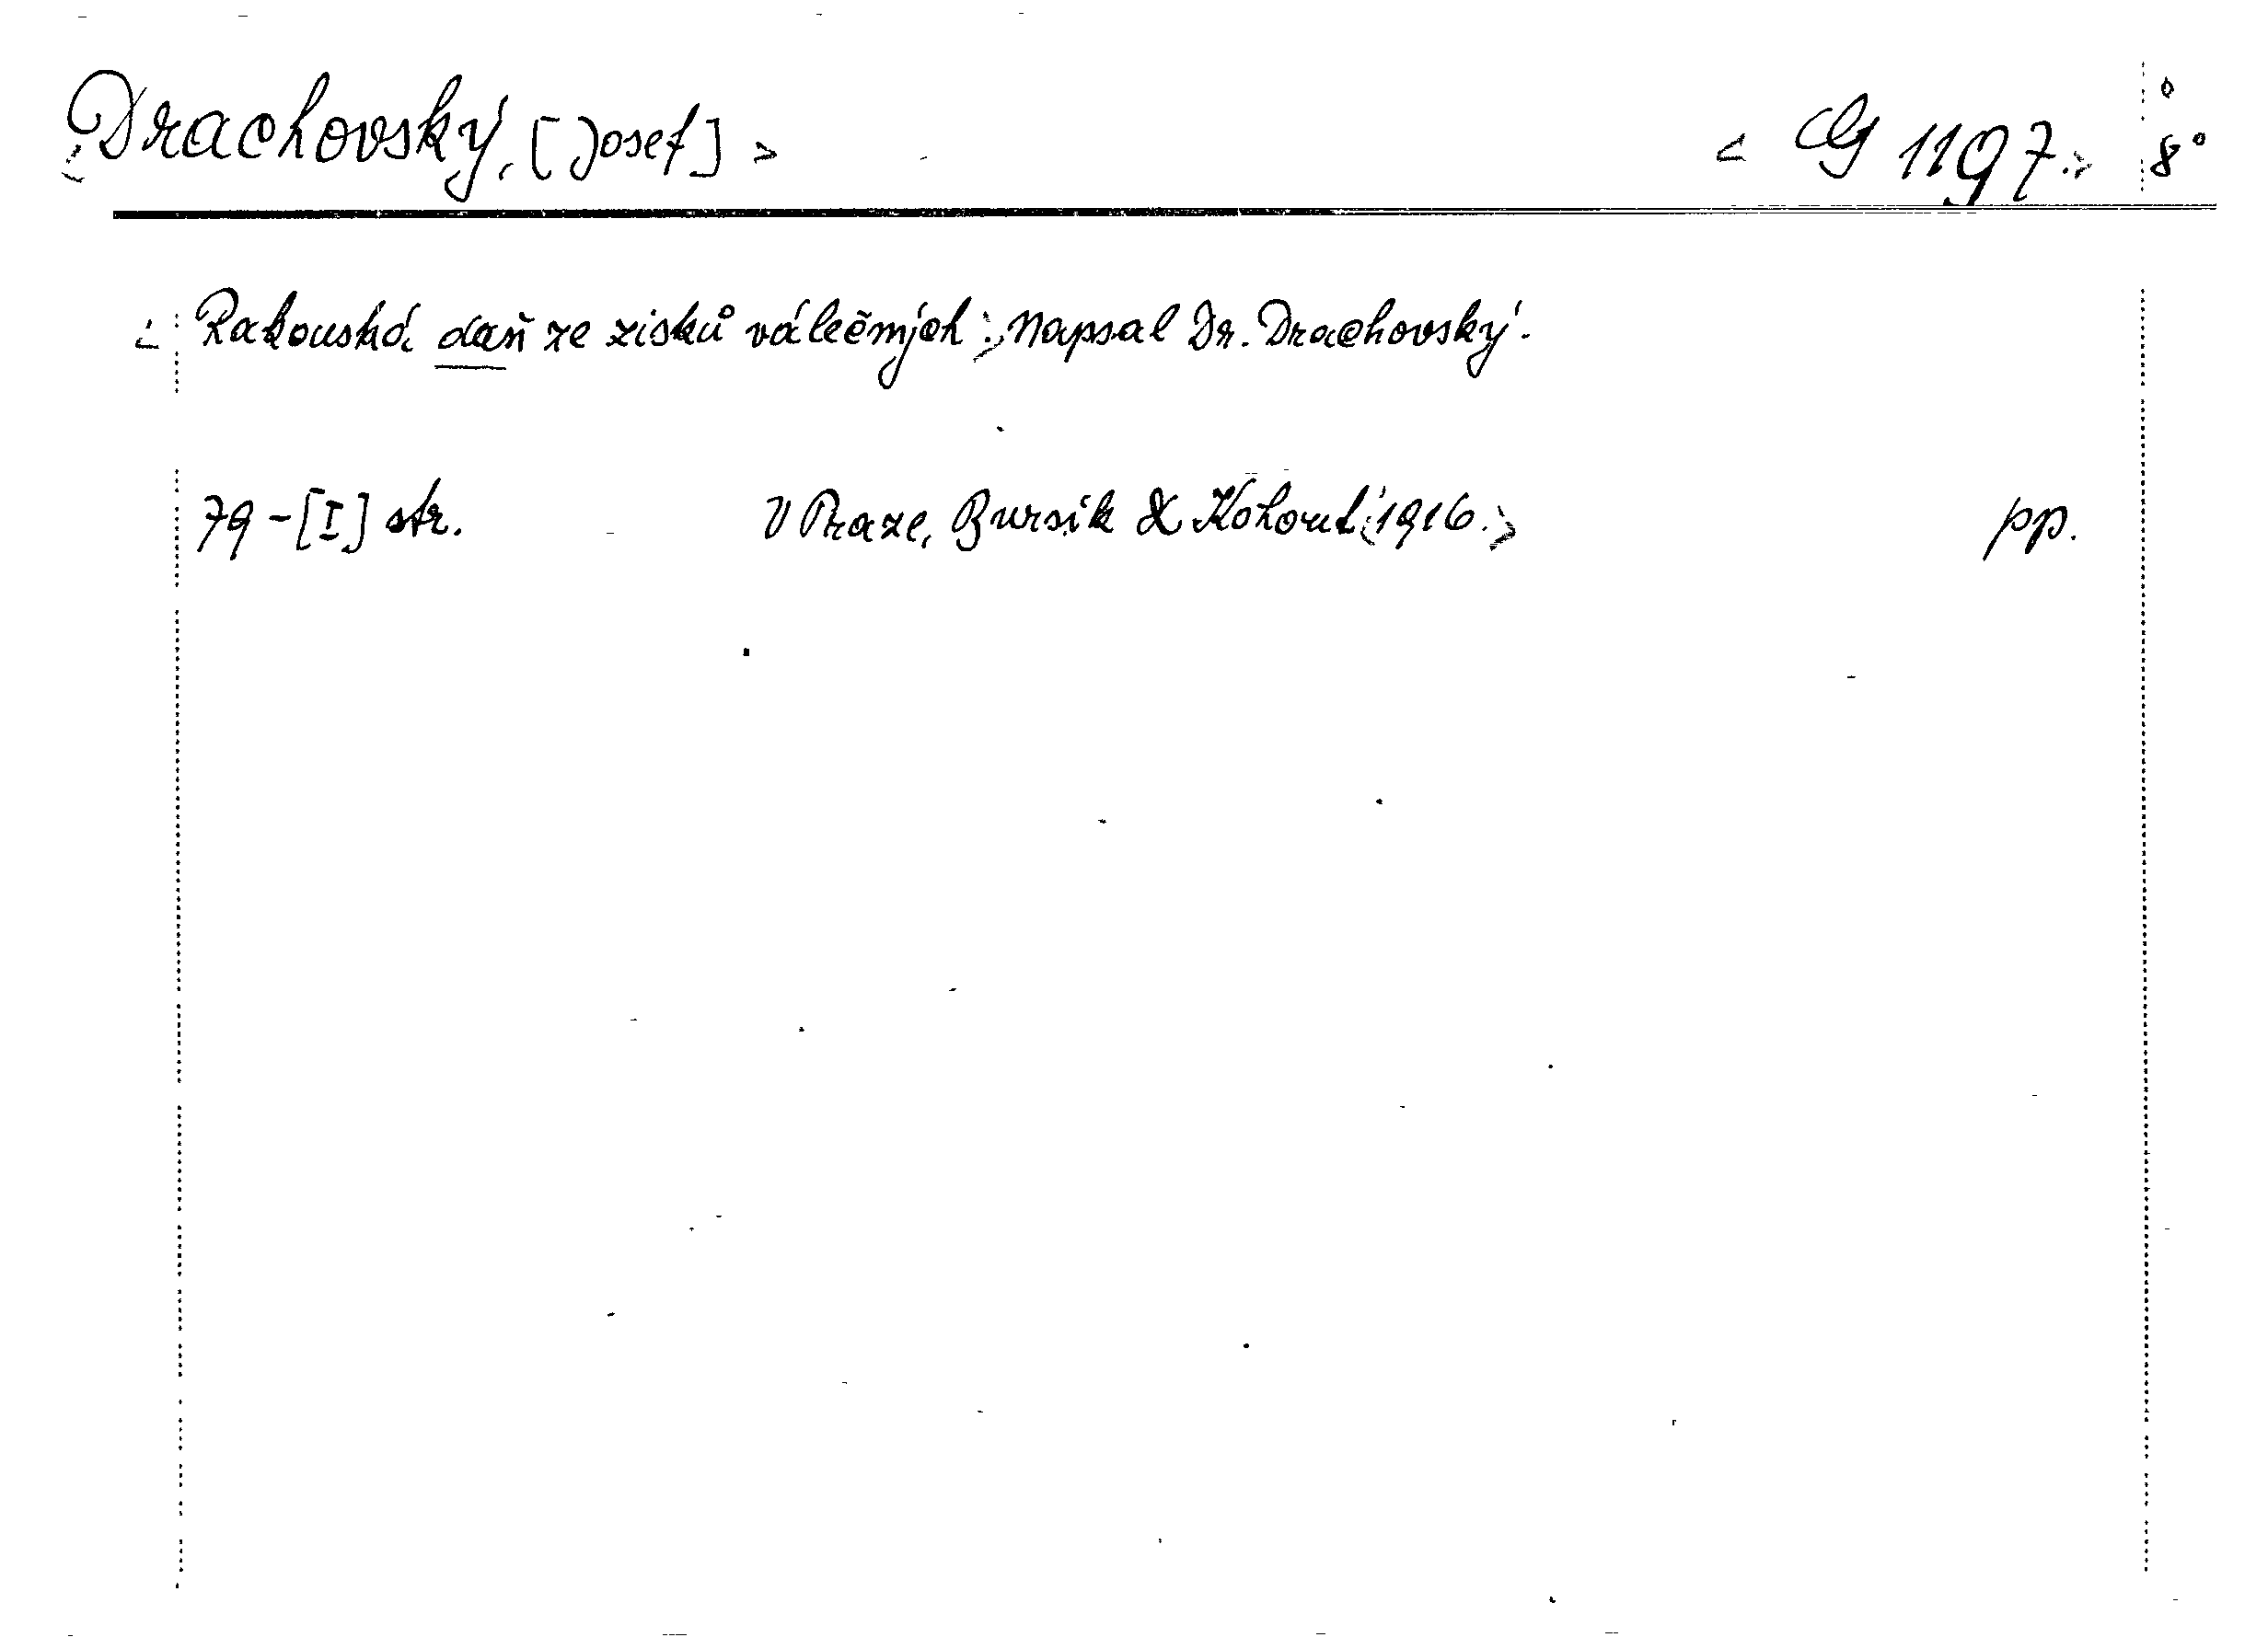 <Drachovský, [Josef]> <G 1197.> 8°
<Rakouská daň ze zisků válečných:> Napsal Dr. Drachovský.
79-[I] str. V Praze, Bursík & Kohout <1916.> pp.